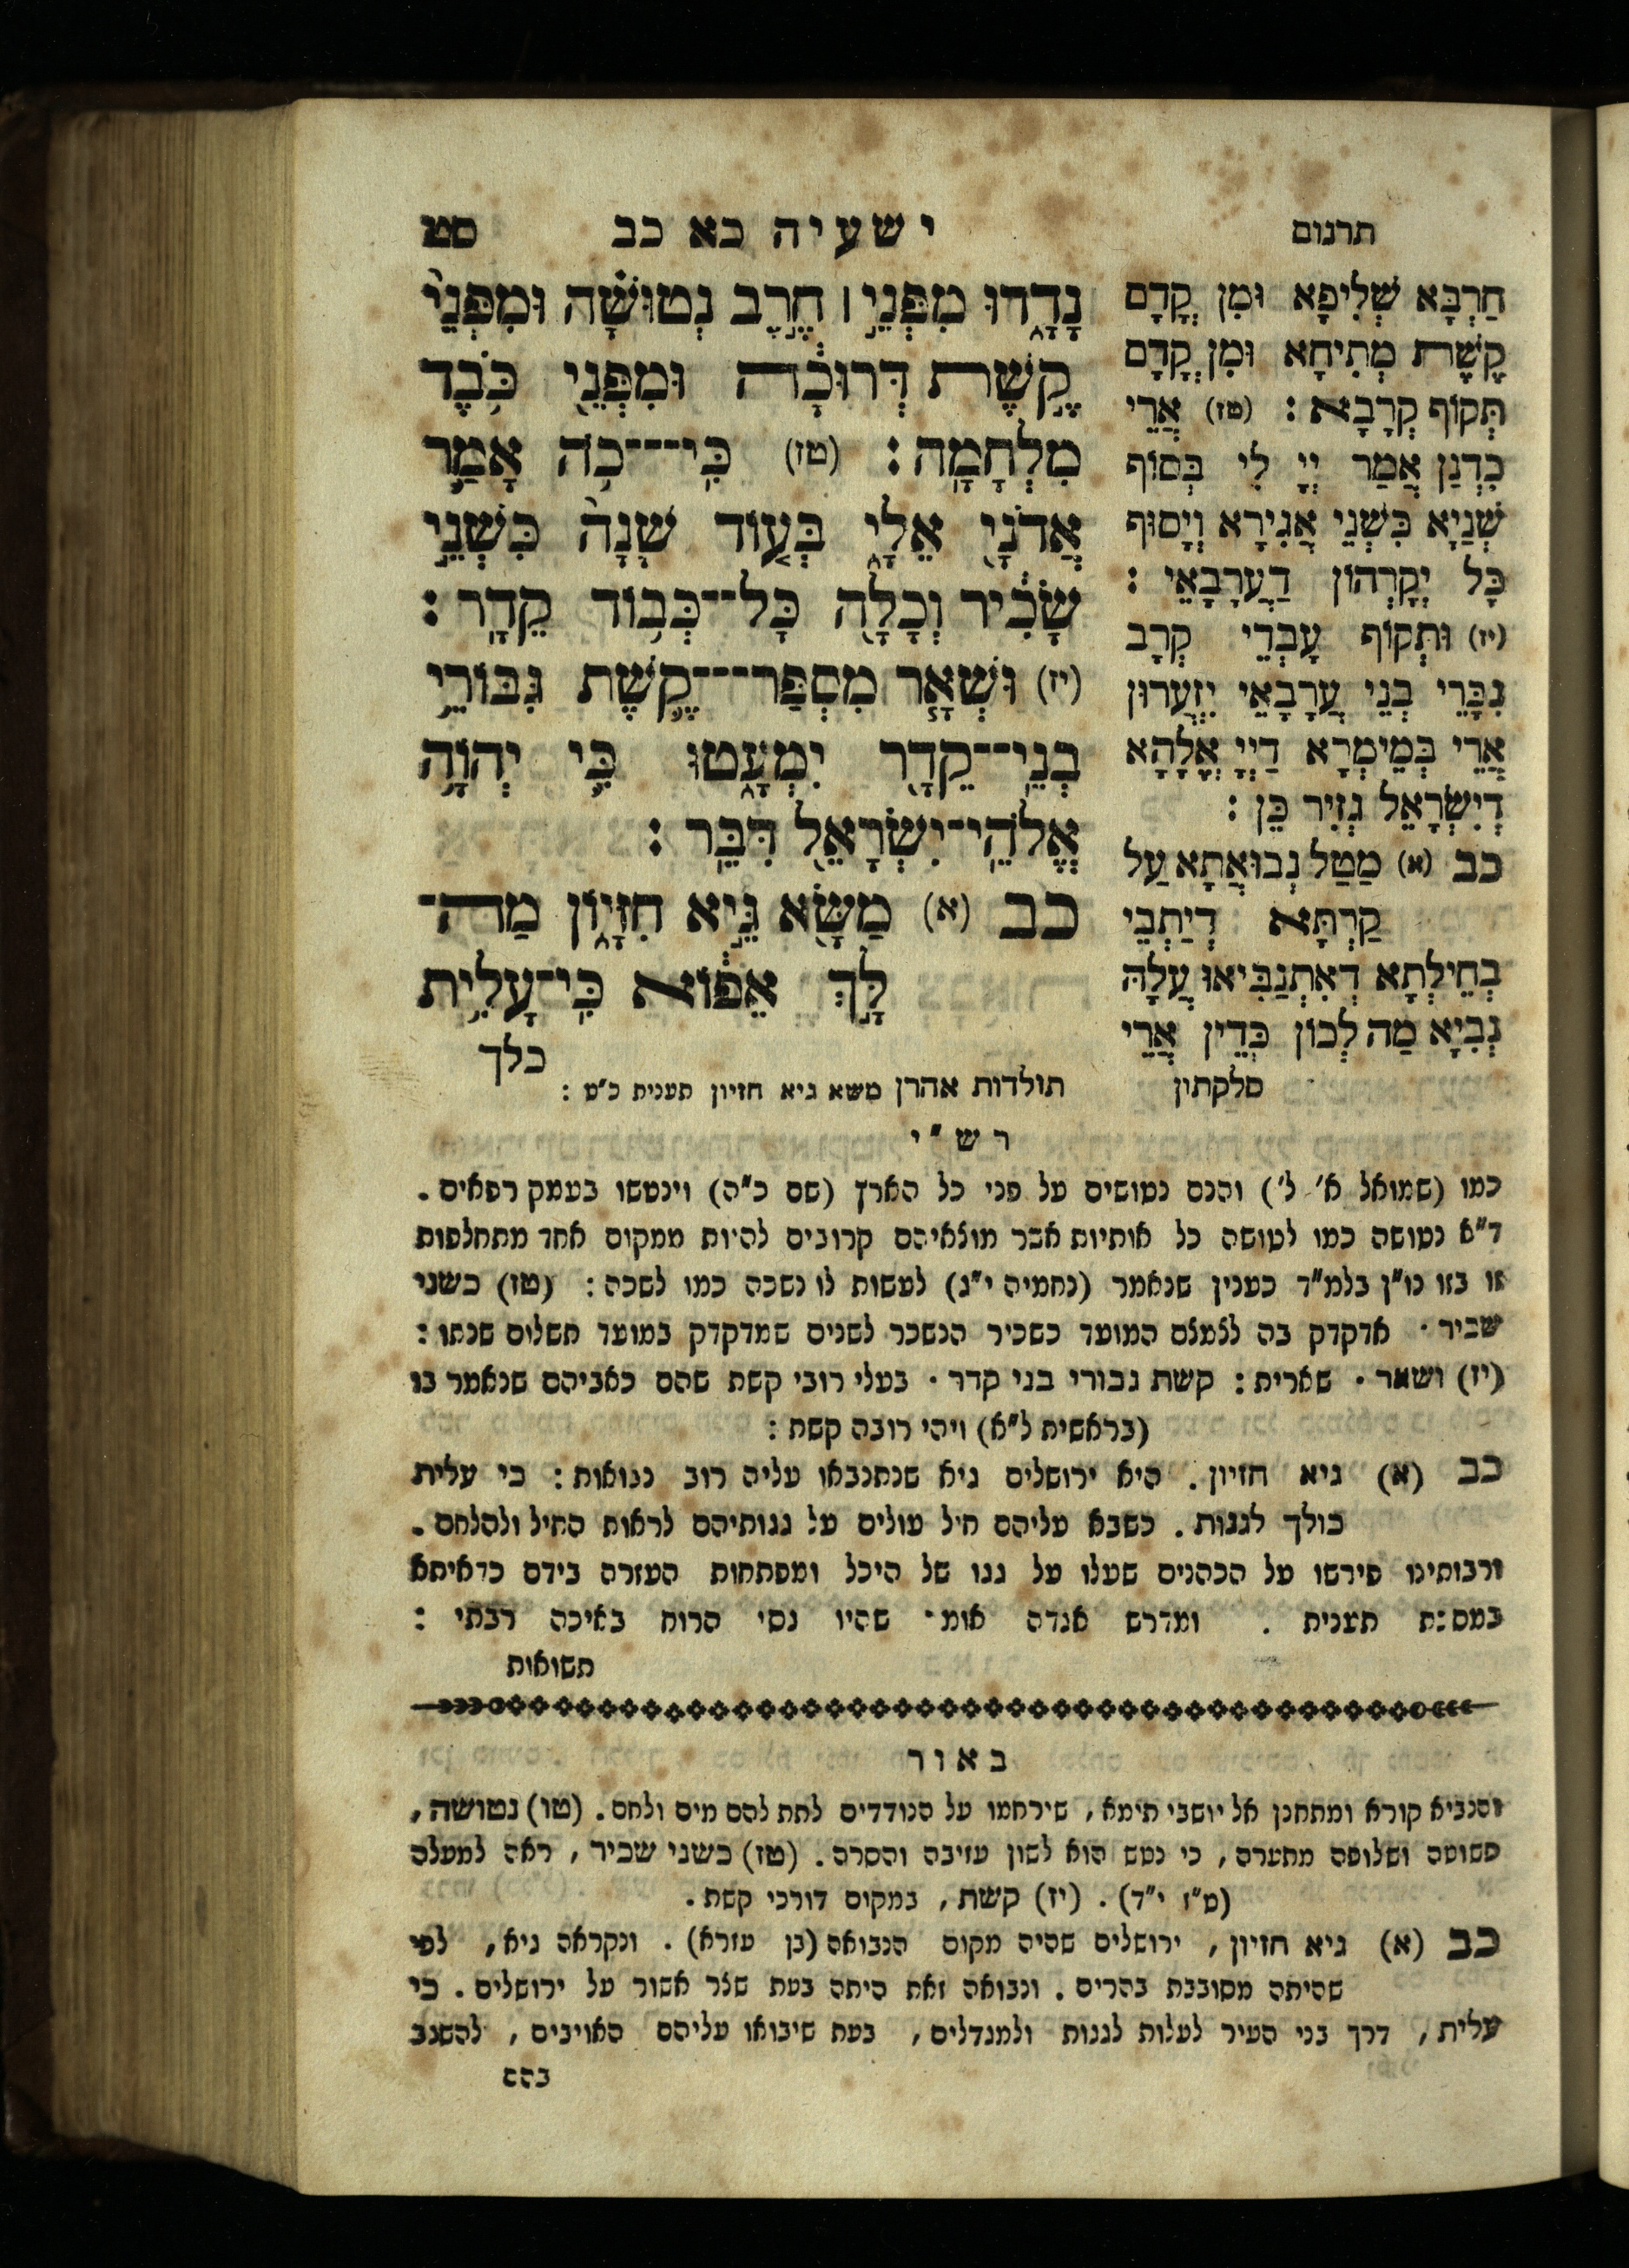 תרגום
ישעיה כא כב
סט
נָדָ֑דוּ מִפְּנֵ֣י ׀ חֶ֣רֶב נְטוּשָׁ֗ה וּמִפְּנֵי֙
קֶ֣שֶׁת דְּרוּכָ֔ה וּמִפְּנֵ֖י כֹּ֥בֶד
מִלְחָמָֽה : (טז) כִּי־כֹ֛ה אָמַ֥ר
אֲדֹנָ֖י אֵלָ֑י בְּע֤וֹד שָׁנָה֙ כִּשְׁנֵ֣י
שָׂכִ֔יר וְכָלָ֖ה כָּל־כְּב֥וֹד קֵדָֽר :
(יז) וּשְׁאָ֧ר מִסְפַּר־קֶ֛שֶׁת גִּבּוֹרֵ֥י
בְנֵֽי־קֵדָ֖ר יִמְעָ֑טוּ כִּ֛י יְהוָ֥ה
אֱלֹהֵֽי־יִשְׂרָאֵ֖ל דִּבֵּֽר :
כב (א) מַשָּׂ֖א גֵּ֣יא חִזָּי֑וֹן מַה־
לָּ֣ךְ אֵפ֔וֹא כִּֽי־עָלִ֥ית
כלך
חַרְבָּא שְׁלִיפָא וּמִן קֳדָם
קַשְׁתָּא מְתִיחָא וּמִן קֳדָם
תְּקוֹף קְרָבָא : (טז) אֲרֵי
כִדְנַן אֲמַר יְיָ לִי בְּסוֹף
שְׁנַיָא כִּשְׁנֵי אֲגִירָא וְיָסוּף
כָּל יְקָרְהוֹן דַעֲרָבָאֵי :
(יז) וּתְקוֹף עָבְדֵי קְרָב
גִבָּרֵי בְּנֵי עֲרָבָאֵי יִזְעֲרוּן
אֲרֵי בְּמֵימְרָא דַיְיָ אֱלָהָא
דְיִשְׂרָאֵל גְזִיר כֵּן :
כב (א) מַטַל נְבוּאֲתָא עַל
קַרְתָּא דְיַתְבֵי
בְחֵילְתָא דְאִתְנַבִּיאוּ עֲלָהּ
נְבִיָא מַה לְכוֹן כְּדֵין אֲרֵי
סלקתון
תולדות אהרן משא גיא חזיון תענית כ״ט :
רש״י
כמו (שמואל א׳ ל׳) והנם נטושים על פני כל הארץ (שם כ״ה) וינטשו בעמק רפאים .
ד״א נטושה כמו לטושה כל אותיות אשר מוצאיהם קרובים להיות ממקום אחד מתחלפות
זו בזו נו״ן בלמ״ד כענין שנאמר (נחמיה י״ג) לעשות לו נשכה כמו לשכה : (טז) כשני
שכיר . אדקדק בה לצמצם המועד כשכיר הנשכר לשנים שמדקדק במועד תשלום שנתו :
(יז) ושאר . שארית : קשת גבורי בני קדר . בעלי רובי קשת שהם כאביהם שנאמר בו
(בראשית ל״א) ויהי רובה קשת :
כב (א) גיא חזיון . היא ירושלים גיא שנתנבאו עליה רוב נבואות : כי עלית
כולך לגגות . כשבא עליהם חיל עולים על גגותיהם לראות החיל ולהלחם .
ורבותינו פירשו על הכהנים שעלו על גגו של היכל ומפתחות העזרה בידם כדאיתא
במסכת תענית . ומדרש אגדה אומ׳ שהיו גסי הרוח באיכה רבתי :
תשואות
באור
והנביא קורא ומתחנן אל יושבי תימא , שירחמו על הנודדים לתת להם מים ולחם . (טו) נטושה ,
פשוטה ושלופה מתערה , כי נטש הוא לשון עזיבה והסרה . (טז) כשני שכיר , ראה למעלה
(ט״ז י״ד) . (יז) קשת , במקום דורכי קשת .
כב (א) גיא חזיון , ירושלים שהיה מקום הנבואה (בן עזרא) . ונקראה גיא , לפי
שהיתה מסובבת בהרים . ונבואה זאת היתה בעת שצר אשור על ירושלים . כי
עלית , דרך בני העיר לעלות לגגות ולמגדלים , בעת שיבואו עליהם האויבים , להשגב
בהם